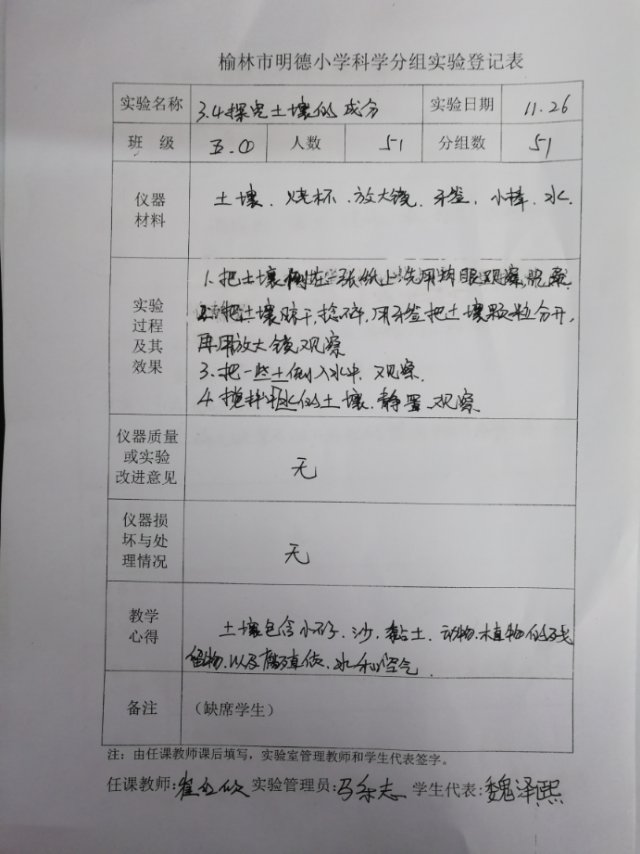 榆林市明德小学科学分组实验登记表
实验名称 3.4探究土壤的成分 实验日期 11.26
班 级 五.① 人数 51 分组数 51
仪器材料 土壤、烧杯、放大镜、牙签、小棒、水.
实验过程及其效果
1.把土壤倒在一张纸上先用肉眼观察
2.把土壤晾干,捻碎,用牙签把土壤颗粒分开,
再用放大镜观察
3.把一些土倒入水中,观察.
4.搅拌水的土壤.静置.观察
仪器质量或实验改进意见 无
仪器损坏与处理情况 无
教学心得
土壤包含小石子、沙、黏土、动物、植物的残
物.以及腐殖质、水和空气
备注 (缺席学生)
注:由任课教师课后填写,实验室管理教师和学生代表签字。
任课教师: 实验管理员: 学生代表:魏泽熙